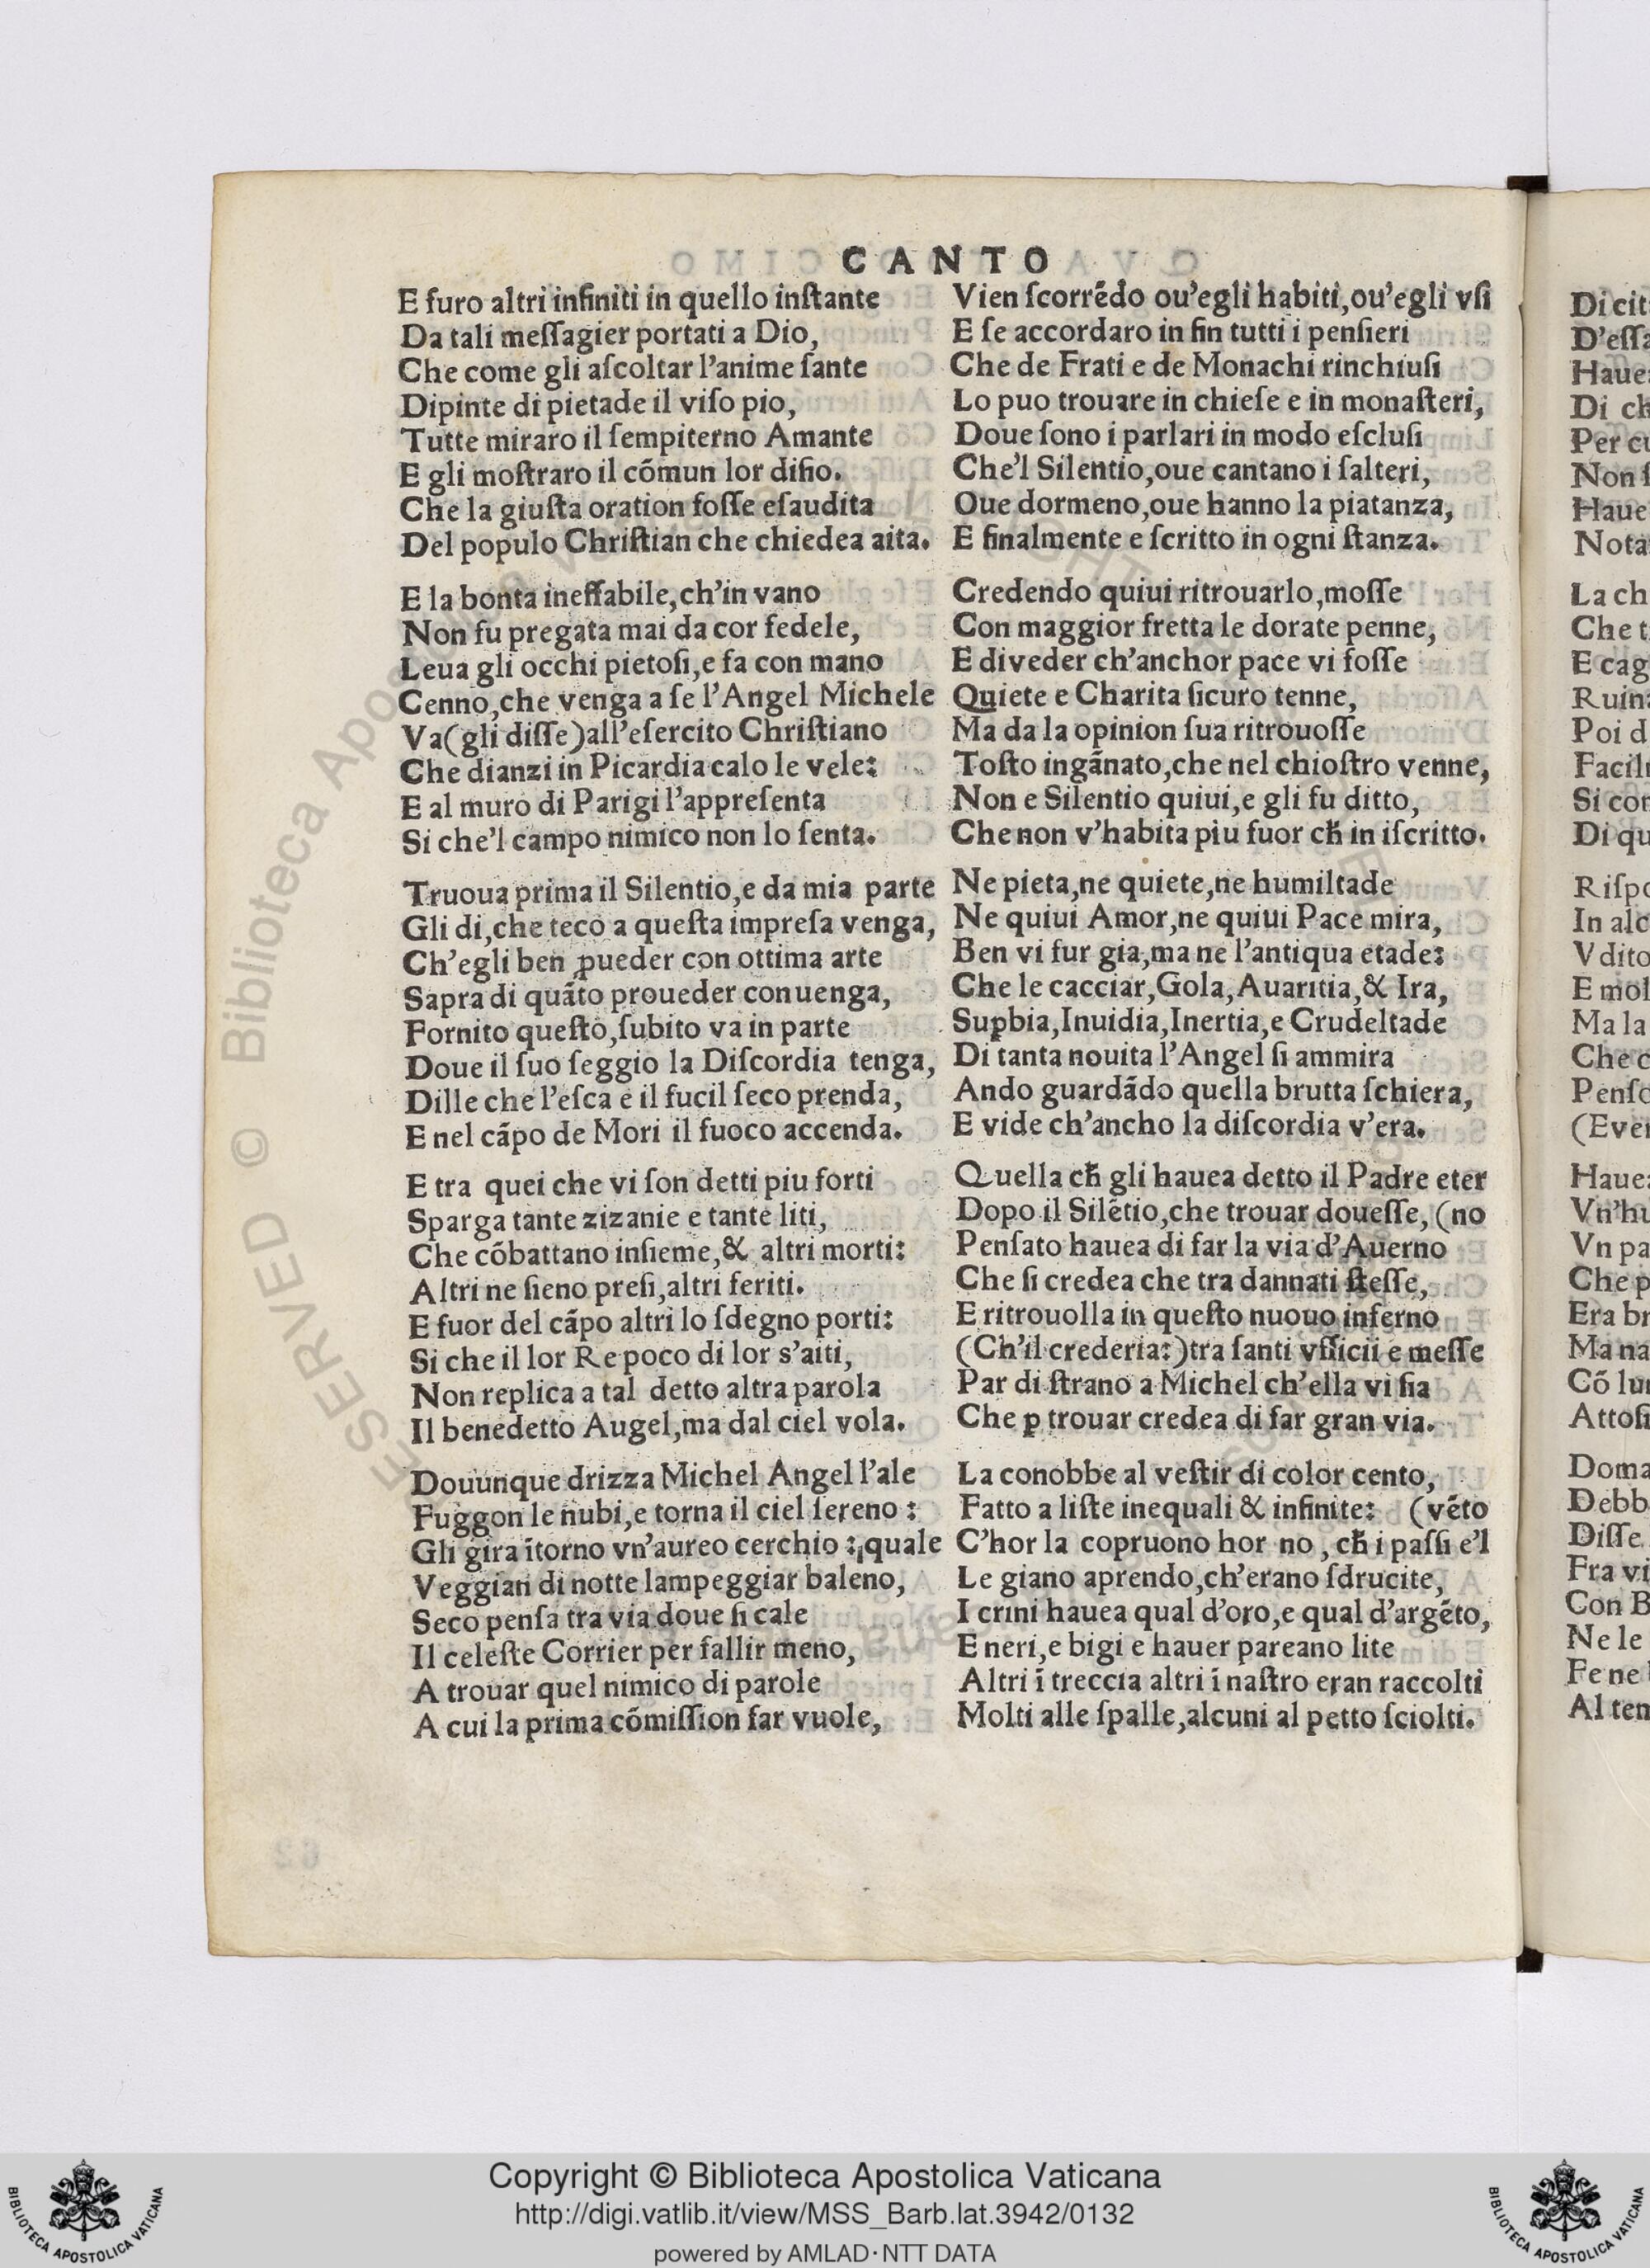 CANTO
E furo altri infiniti in quello inſtante
Da tali meſſagier portati a Dio,
Che come gli aſcoltar l'anime ſante
Dipinte di pietade il viſo pio,
Tutte miraro il ſempiterno Amante
E gli moſtraro il cõmun lor diſio.
Che la giuſta oration foſſe eſaudita
Del populo Chriſtian che chiedea aita.
E la bonta ineffabile,ch'in vano
Non fu pregata mai da cor fedele,
Leua gli occhi pietoſi,e fa con mano
Cenno,che venga a ſe l'Angel Michele
Va(gli diſſe)all'eſercito Chriſtiano
Che dianzi in Picardia calo le vele:
E al muro di Parigi l'appreſenta
Si che'l campo nimico non lo ſenta.
Truoua prima il Silentio,e da mia parte
Gli di,che teco a queſta impreſa venga,
Ch'egli ben ꝓueder con ottima arte
Sapra di quãto proueder conuenga,
Fornito queſto,ſubito va in parte
Doue il ſuo ſeggio la Diſcordia tenga,
Dille che l'eſca e il fucil ſeco prenda,
E nel cãpo de Mori il fuoco accenda.
E tra quei che vi ſon detti piu forti
Sparga tante zizanie e tante liti,
Che cõbattano inſieme,& altri morti:
Altri ne ſieno preſi,altri feriti.
E fuor del cãpo altri lo ſdegno porti:
Si che il lor Re poco di lor s'aiti,
Non replica a tal detto altra parola
Il benedetto Augel,ma dal ciel vola.
Douunque drizza Michel Angel l'ale
Fuggon le nubi,e torna il ciel ſereno :
Gli gira ĩtorno vn'aureo cerchio :,quale
Veggian di notte lampeggiar baleno,
Seco penſa tra via doue ſi cale
Il celeſte Corrier per fallir meno,
A trouar quel nimico di parole
A cui la prima cõmiſſion far vuole,
Vien ſcorrẽdo ou'egli habiti,ou'egli vſi
E ſe accordaro in fin tutti i penſieri
Che de Frati e de Monachi rinchiuſi
Lo puo trouare in chieſe e in monaſteri,
Doue ſono i parlari in modo eſcluſi
Che'l Silentio,oue cantano i ſalteri,
Oue dormeno,oue hanno la piatanza,
E finalmente e ſcritto in ogni ſtanza.
Credendo quiui ritrouarlo,moſſe
Con maggior fretta le dorate penne,
E diveder ch'anchor pace vi foſſe
Quiete e Charita ſicuro tenne,
Ma da la opinion ſua ritrouoſſe
Toſto ingãnato,che nel chioſtro venne,
Non e Silentio quiui,e gli fu ditto,
Che non v'habita piu fuor cħ in iſcritto.
Ne pieta,ne quiete,ne humiltade
Ne quiui Amor,ne quiui Pace mira,
Ben vi fur gia,ma ne l'antiqua etade:
Che le cacciar,Gola,Auaritia,& Ira,
Suꝑbia,Inuidia,Inertia,e Crudeltade
Di tanta nouita l'Angel ſi ammira
Ando guardãdo quella brutta ſchiera,
E vide ch'ancho la diſcordia v'era.
Quella cħ gli hauea detto il Padre eter
Dopo il Silẽtio,che trouar doueſſe, (no
Penſato hauea di far la via d'Auerno
Che ſi credea che tra dannati ſteſſe,
E ritrouolla in queſto nuouo inferno
(Ch'il crederia:)tra ſanti vfficii e meſſe
Par di ſtrano a Michel ch'ella vi ſia
Che ꝑ trouar credea di far gran via.
La conobbe al veſtir di color cento,
Fatto a liſte inequali & infinite: (vẽto
C'hor la copruono hor no , cħ i paſſi e'l
Le giano aprendo,ch'erano ſdrucite,
I crini hauea qual d'oro,e qual d'argẽto,
E neri,e bigi e hauer pareano lite
Altri ĩ treccia altri ĩ naſtro eran raccolti
Molti alle ſpalle,alcuni al petto ſciolti.
Di cit
D'eſſa
Haue
Di ch
Per cu
Non ſ
Haue
Nota
La ch
Che t
E cag
Ruin
Poi d
Facil
Si con
Di qu
Riſpo
In alc
Vdito
E mol
Ma la
Che c
Penſo
(Eve
Haue
Vn'hu
Vn pa
Che p
Era br
Ma na
Cõ lu
Attoſ
Doma
Debb
Diſſe
Fra vi
Con B
Ne le
Fe ne
Al tem
62
ESERVED © Biblioteca Apos
Copyright © Biblioteca Apostolica Vaticana
http://digi.vatlib.it/view/MSS_Barb.lat.3942/0132
powered by AMLAD·NTT DATA
BIBLIOTECA APOSTOLICA VATICANA
BIBLIOTECA APOSTOLICA VATICANA